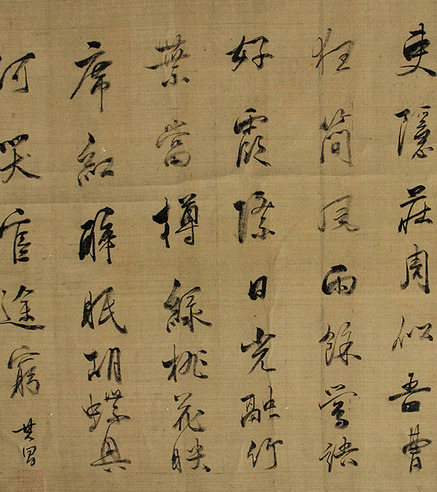 吏隱莊周似吾曹
狂簡風雨餘鶯語
好霞際日光融竹
葉當樽綠桃花映
席紅醉眠胡蝶
何哭宦途窮
其昌